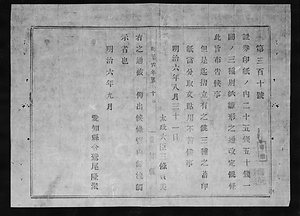 第三百十號
證券印紙ノ内二十五錢五十錢一
圓ノ三種別紙雛形之通改定候條
此旨布告候事
但是迄相立有之候三種之證印
紙當分取交貼用不苦候事
明治六年八月三十一日
太政大臣
右之通被 仰出候條
示者也
明治六年九月
愛知縣
鷲尾隆聚